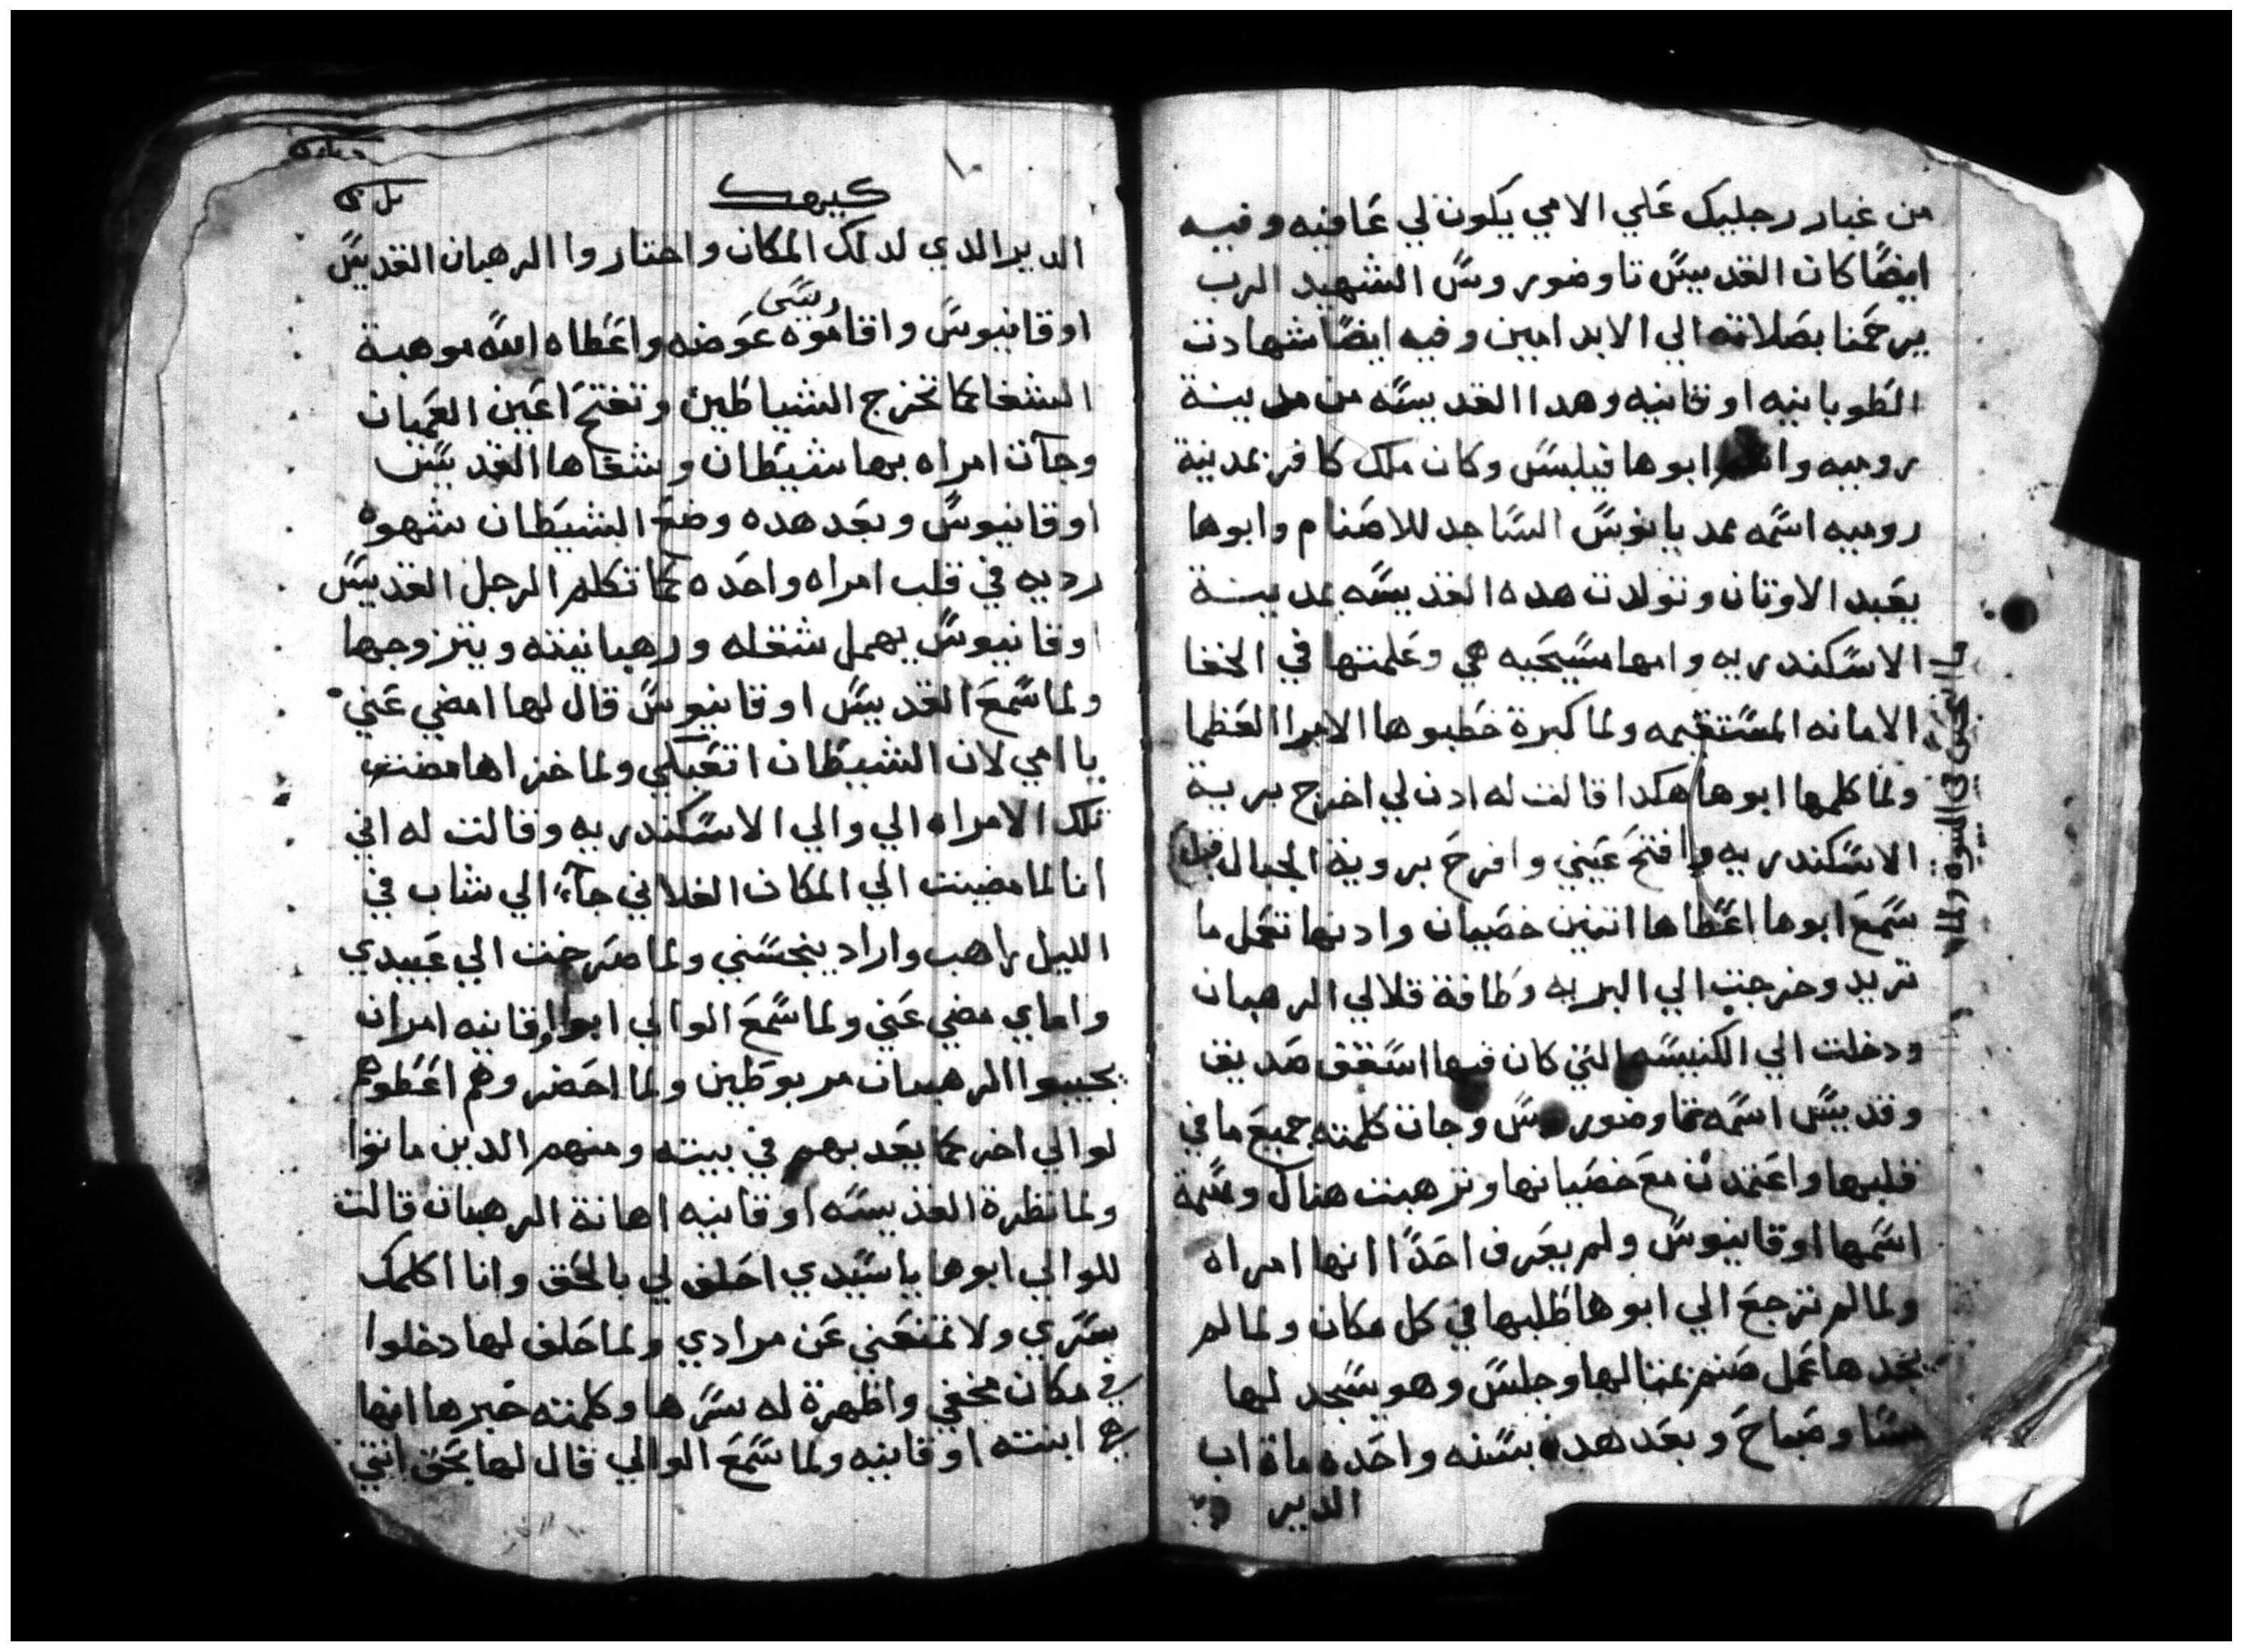 من غبار رجليك علي الامي يكون لي عافيه وفيه
ايضًا كان القديس تاوضوروس الشهيد الرب
يرحمنا بصلاته الي الابد امين وفيه ايضًا شهادت
الطوبانيه اوقانيه وهدا القديسه من مدينة
روميه وابوها فيلبس وكان ملك كافر بمدينة
روميه اسمه الساجد للاصنام وابوها
يعبد الاوتان وتولدت هده القديسه بمدينة
الاسكندريه وامها مسيحيه هي وعلمتها في الخفا
الامانه المستقيمه ولما كبرة خطبوها الامرا العظما
ولما كلمها ابوها هكدا قالت له ادن لي اخرج برية
الاسكندريه وافتح عيني وافرح بروية الجبال
سمع ابوها اعطاها اتنين خصيان وادنها تعمل ما
تريد وخرجت الي البريه وطافة قلالي الرهبان
ودخلت الي الكنيسه التي كان فيها اسقف صديق
وقديس اسمه تاوضوروس وجات كلمته جميع ما في
قلبها واعتمدت مع خصيانها وترهبنت هناك وسمة
اسمها اوقانيوس ولم يعرف احدًا انها امراه
ولما لم ترجع الي ابوها طلبها في كل مكان ولما لم
يجدها عمل صنم تمتالها وجلس وهو يسجد لها
مسا وصباح وبعد هده بسنه واحده مات اب
الدير
في النبوه ولما
كيهك
الدير الدي لدلك المكان واختاروا الرهبان القديس
ريس
اوقانيوس واقاموه عوضه واعطاه الله موهبة
الشفا كما تخرج الشياطين وتفتح اعين العميان
وجآت امراه بها شيطان وشفاها القديس
اوقانيوس وبعد هده وضع الشيطان شهوه
رديه في قلب امراه واحده كما تكلم الرجل القديس
اوقانيوس يهمل شغله ورهبانيته ويتزوجها
ولما سمع القديس اوقانيوس قال لها امضي عني
يا امي لان الشيطان اتعبكي ولما خزاها مضت
تلك الامراه الي والي الاسكندريه وقالت له اني
انا لما مضيت الي المكان الفلاني جآء الي شاب في
الليل راهب واراد ينجسني ولما صرخت الي عبيدي
واماي مضي عني ولما سمع الوالي ابو اوقانيه امر ان
يجيبوا الرهبان مربوطين ولما احضروهم اعطوهم
لوالي اخر كما يعدبهم في بيته ومنهم الدين ماتوا
ولما نظرة القديسه اوقانيه اهانة الرهبان قالت
للوالي ابوها يا سيدي احلف لي بالحق وانا اكلمك
بسري ولا تمنعني عن مرادي ولما حلف لها دخلوا
في مكان مخفي واظهرة له سرها وكلمته خبرها انها
هي ابنته اوقانيه ولما سمع الوالي قال لها بحق انتي